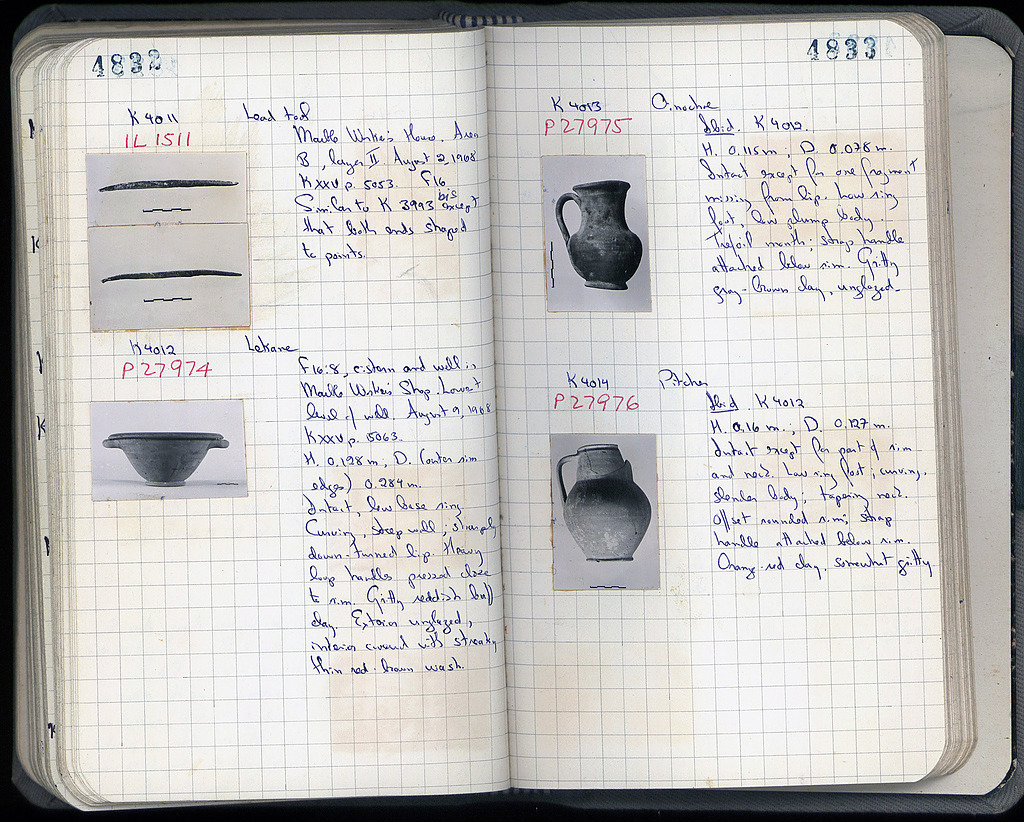 4832
K 4011 Lead tool
IL 1511
Marble Worker's House. Area
B, layer II August 2, 1968
K XXV p. 5053. F16.
Similar to K 3993 bis except
that both ends shaped
to points.
K 4012 Lekane
P 27974
F16:8, cistern and well in
Marble Worker's Shop. Lowest
level of well. August 9, 1968
K XXV p. 5063.
H. 0.128 m, D. (outer rim
edges) 0.284 m.
Intact, low base ring
Curving, steep wall; strongly
down-turned lip. Heavy
loop handles pressed close
to rim. Gritty reddish buff
clay. Exterior unglazed,
interior covered with streaky
thin red-brown wash.
4833
K 4013 Oinochoe
P 27975
Ibid. K 4012.
H. 0.115 m; D. 0.078 m.
Intact except for one fragment
missing from lip. Low ring
foot, low plump body.
Trefoil mouth; strap handle
attached below rim. Gritty
gray-brown clay, unglazed.
K 4014 Pitcher
P 27976
Ibid K 4012
H. 0.16 m.; D. 0.127 m.
Intact except for part of rim
and neck. Low ring foot, curving,
slender body; tapering neck.
Offset rounded rim; strap
handle attached below rim.
Orange-red clay, somewhat gritty